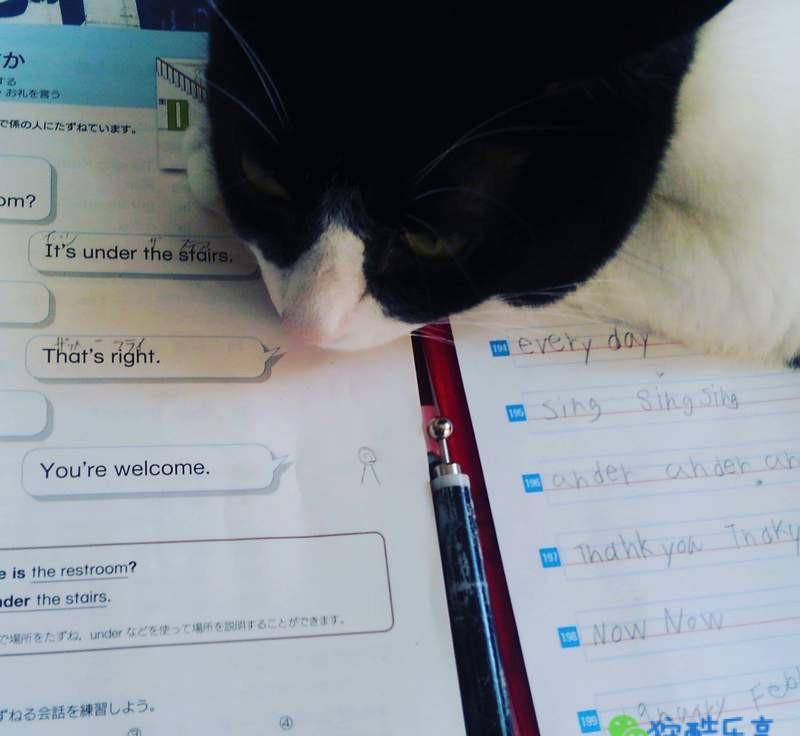 か
する
・お礼を言う
で係の人にたずねています。
om?
イッツ ザ
It's under the stairs.
ザッツ ライ
That's right.
You're welcome.
e is the restroom?
nder the stairs.
で場所をたずね，under などを使って場所を説明することができます。
ずねる会話を練習しよう。
③ ④
194 every day
195 sing sing sing
196 under under un
197 Thank you Thaky
198 Now Now
199 January Feb